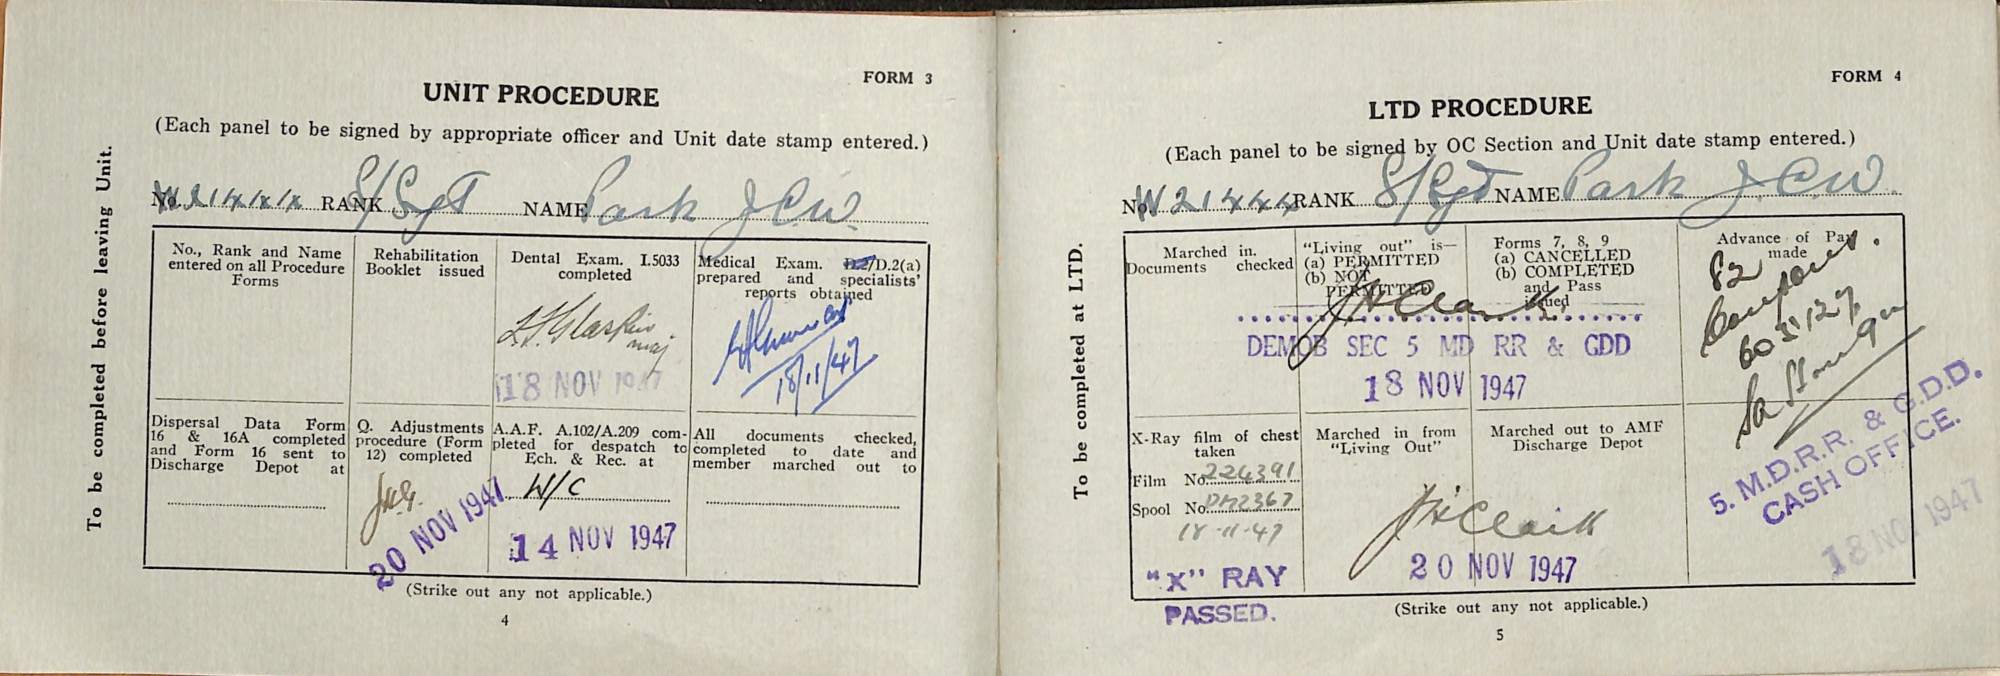 FORM 3
UNIT PROCEDURE
(Each panel to be signed by appropriate officer and Unit date stamp entered.)
To be completed before leaving Unit.
No. W21444 RANK S/Sgt NAME Park J.C.W.
No., Rank and Name
entered on all Procedure
Forms
Rehabilitation
Booklet issued
Dental Exam. I.5033
completed
maj
18 NOV 1947
Medical Exam. D.2/D.2(a)
prepared and specialists'
reports obtained
18/11/47
Dispersal Data Form
16 & 16A completed
and Form 16 sent to
Discharge Depot at
Q. Adjustments
procedure (Form
12) completed
20 NOV 1947
A.A.F. A.102/A.209 com-
pleted for despatch to
Ech. & Rec. at
W/C
14 NOV 1947
All documents checked,
completed to date and
member marched out to
(Strike out any not applicable.)
4
FORM 4
LTD PROCEDURE
(Each panel to be signed by OC Section and Unit date stamp entered.)
To be completed at LTD.
No. W21444 RANK S/Sgt NAME Park J.C.W.
Marched in.
Documents checked
"Living out" is—
(a) PERMITTED
(b) NOT
PERMITTED
Forms 7, 8, 9
(a) CANCELLED
(b) COMPLETED
and Pass
issued
J H Clark
DEMOB SEC 5 MD RR & GDD
18 NOV 1947
Advance of Pay
made
£2
5. M.D.R.R. & G.D.D.
CASH OFFICE.
18 NOV 1947
X-Ray film of chest
taken
Film No. 224391
Spool No. DM2367
18-11-47
"X" RAY
PASSED.
Marched in from
"Living Out"
Marched out to AMF
Discharge Depot
J H Clark
20 NOV 1947
(Strike out any not applicable.)
5